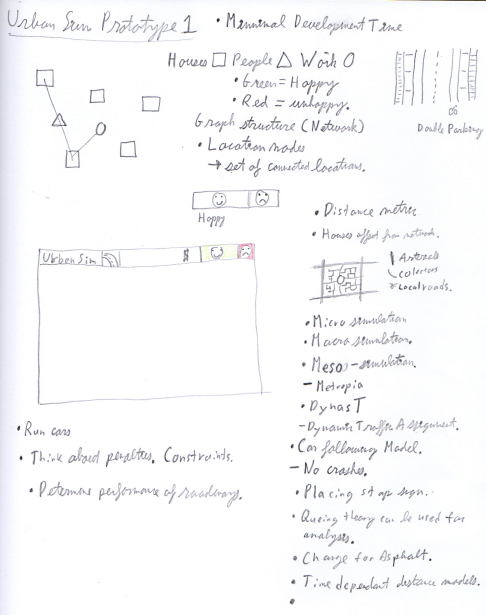 Urban Sim Prototype 1
• Minnimal Development Time
Houses □ People △ Work O
• Green = Happy
• Red = unhappy.
Graph structure (Network)
• Location nodes
→ set of connected locations.
Double Parking
Happy
• Distance metric
• Houses offset from network.
Urban Sim
$
Arterials
Collectors
Local roads.
• Micro simulation
• Macro simulation.
• Meso-simulation.
- Metropia
• DynasT
- Dynamic Traffic Assignment.
• Car following Model.
- No crashes.
• Placing stop sign.
• Queing theory can be used for
analysis.
• Charge for Asphalt.
• Time dependant distance models.
• Run cars
• Think about penalties. Constraints.
• Determine performance of roadways.